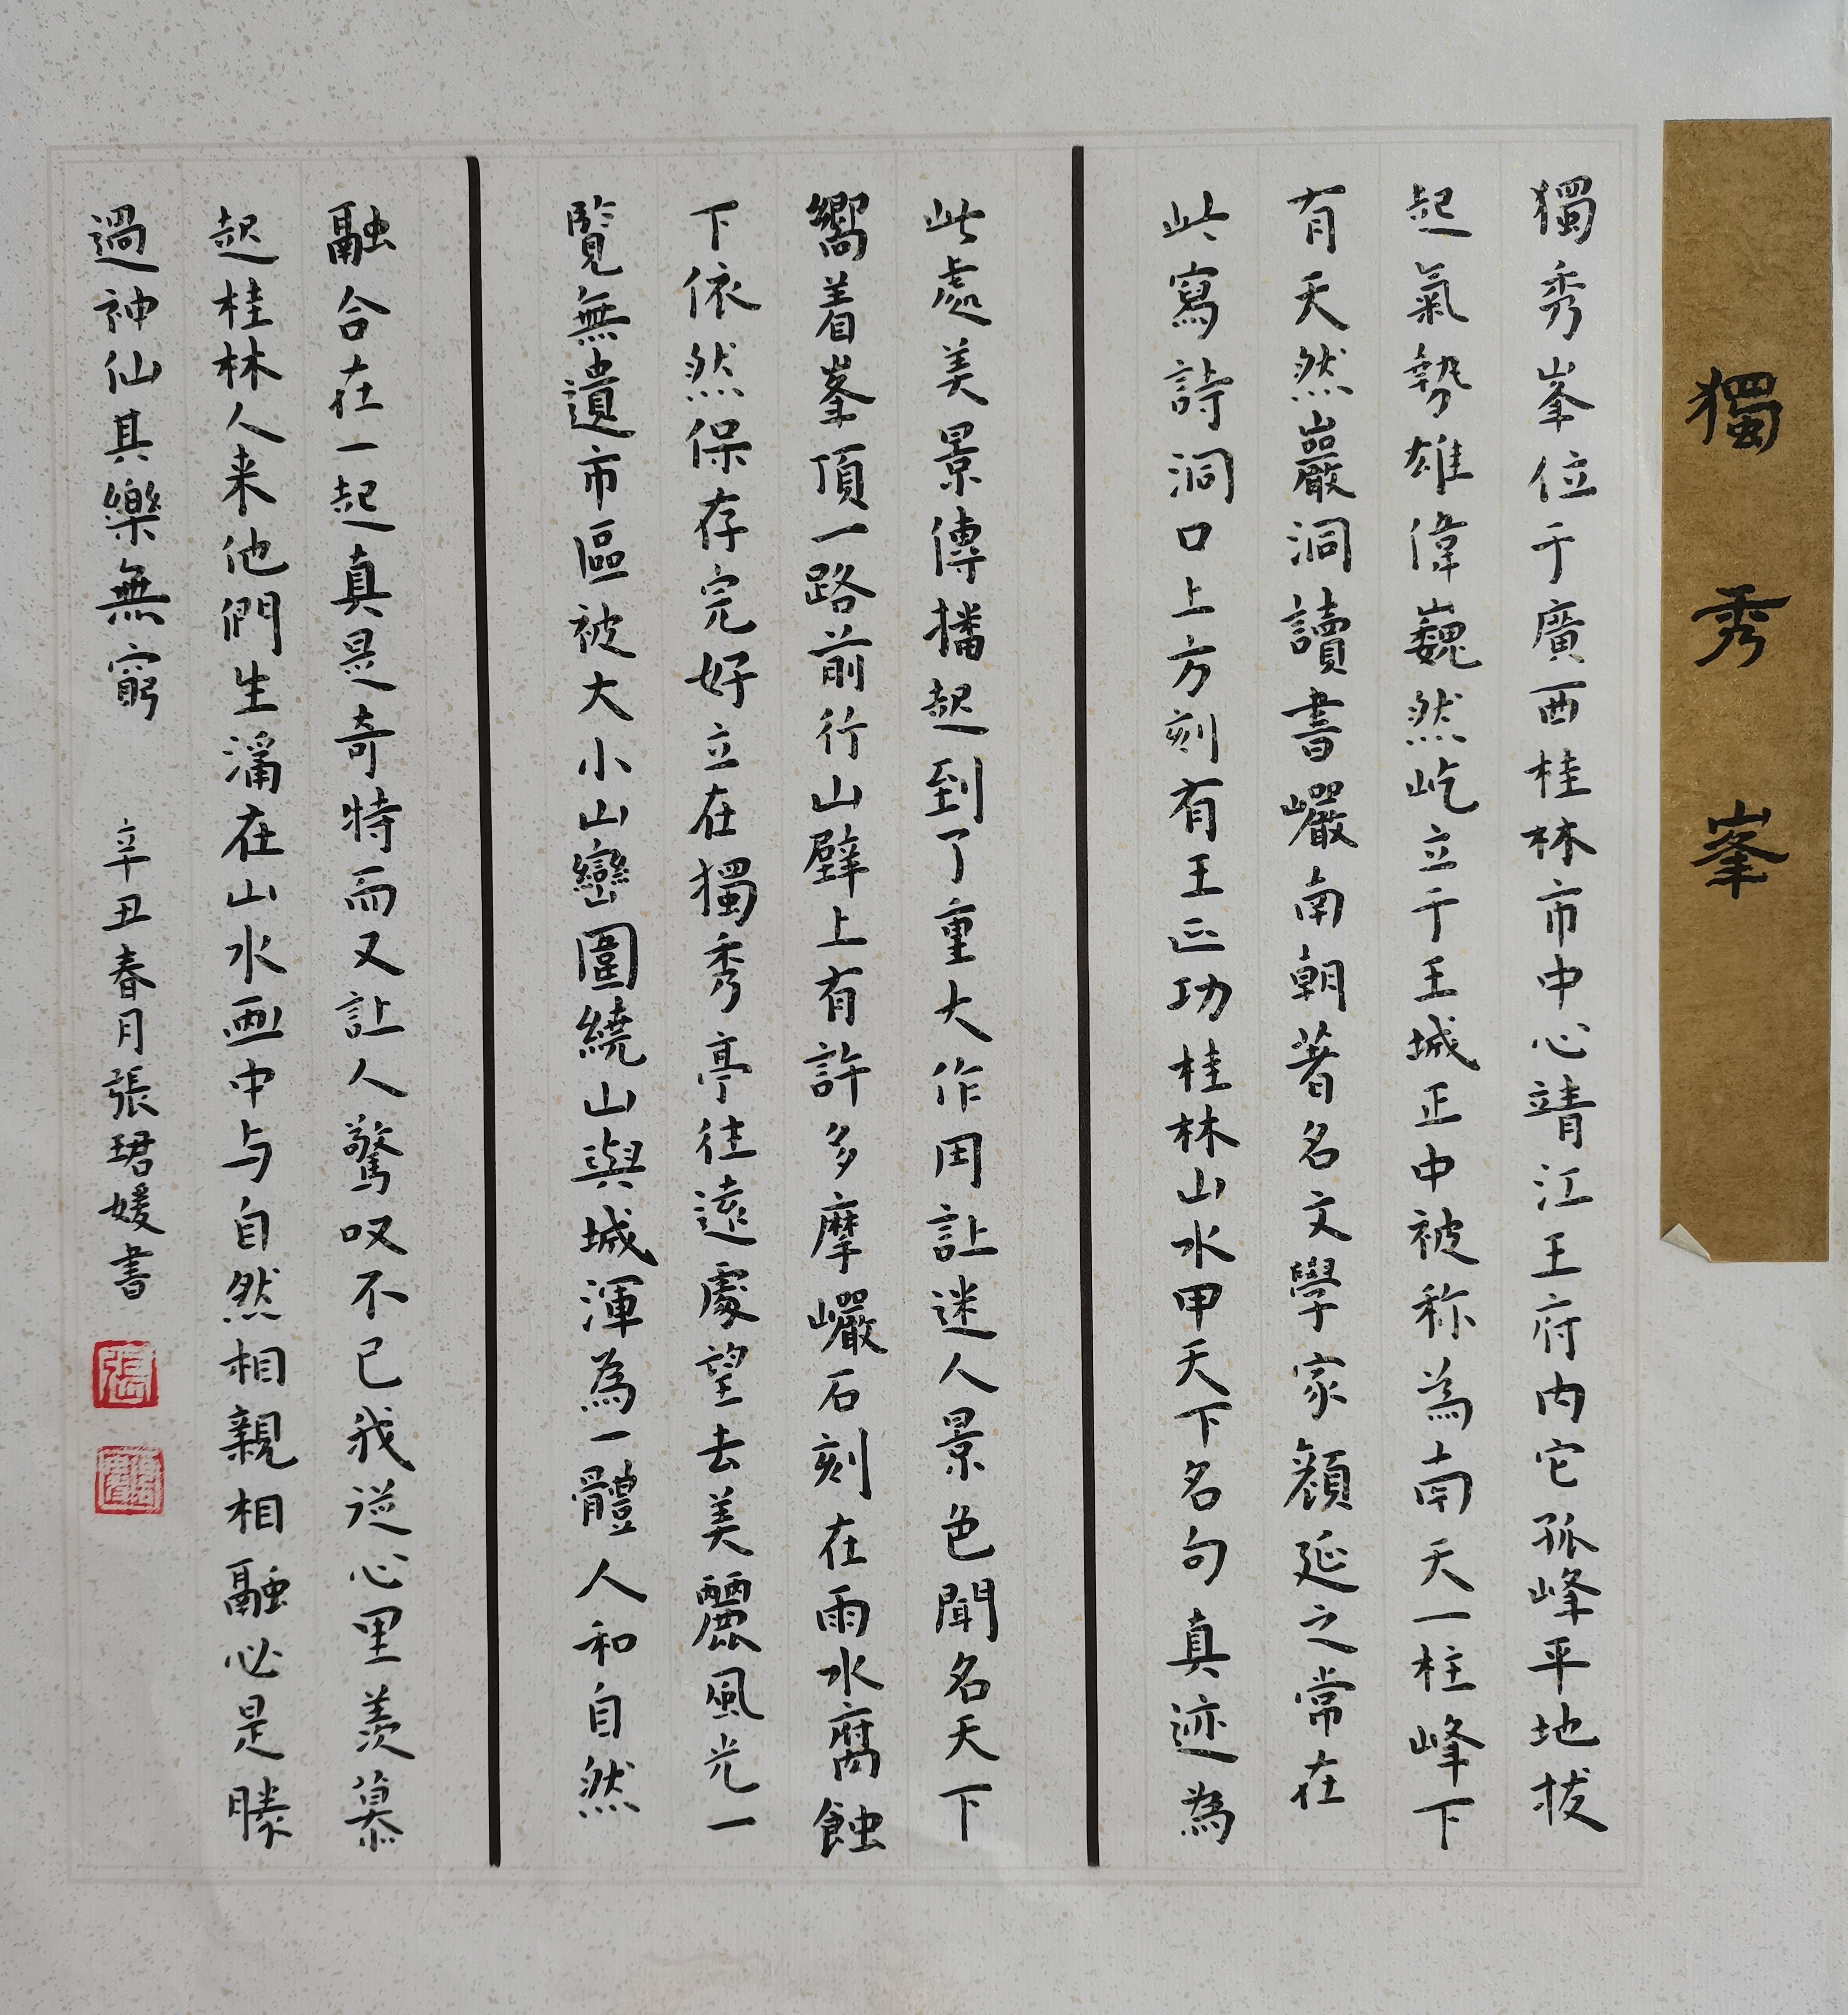 獨秀峯
獨秀峯位于廣西桂林市中心靖江王府内它孤峰平地拔
起氣勢雄偉巍然屹立于王城正中被称為南天一柱峰下
有天然巖洞讀書巗南朝著名文學家顔延之常在
此寫詩洞口上方刻有王正功桂林山水甲天下名句真迹為
此處美景傳播起到了重大作用讓迷人景色聞名天下
嚮着峯頂一路前行山壁上有許多摩巗石刻在雨水腐蝕
下依然保存完好立在獨秀亭往遠處望去美麗風光一
覽無遺市區被大小山巒圍繞山與城渾為一體人和自然
融合在一起真是奇特而又讓人驚叹不已我從心里羨慕
起桂林人来他們生活在山水画中与自然相親相融必是勝
過神仙其樂無窮
辛丑春月張珺媛書
張